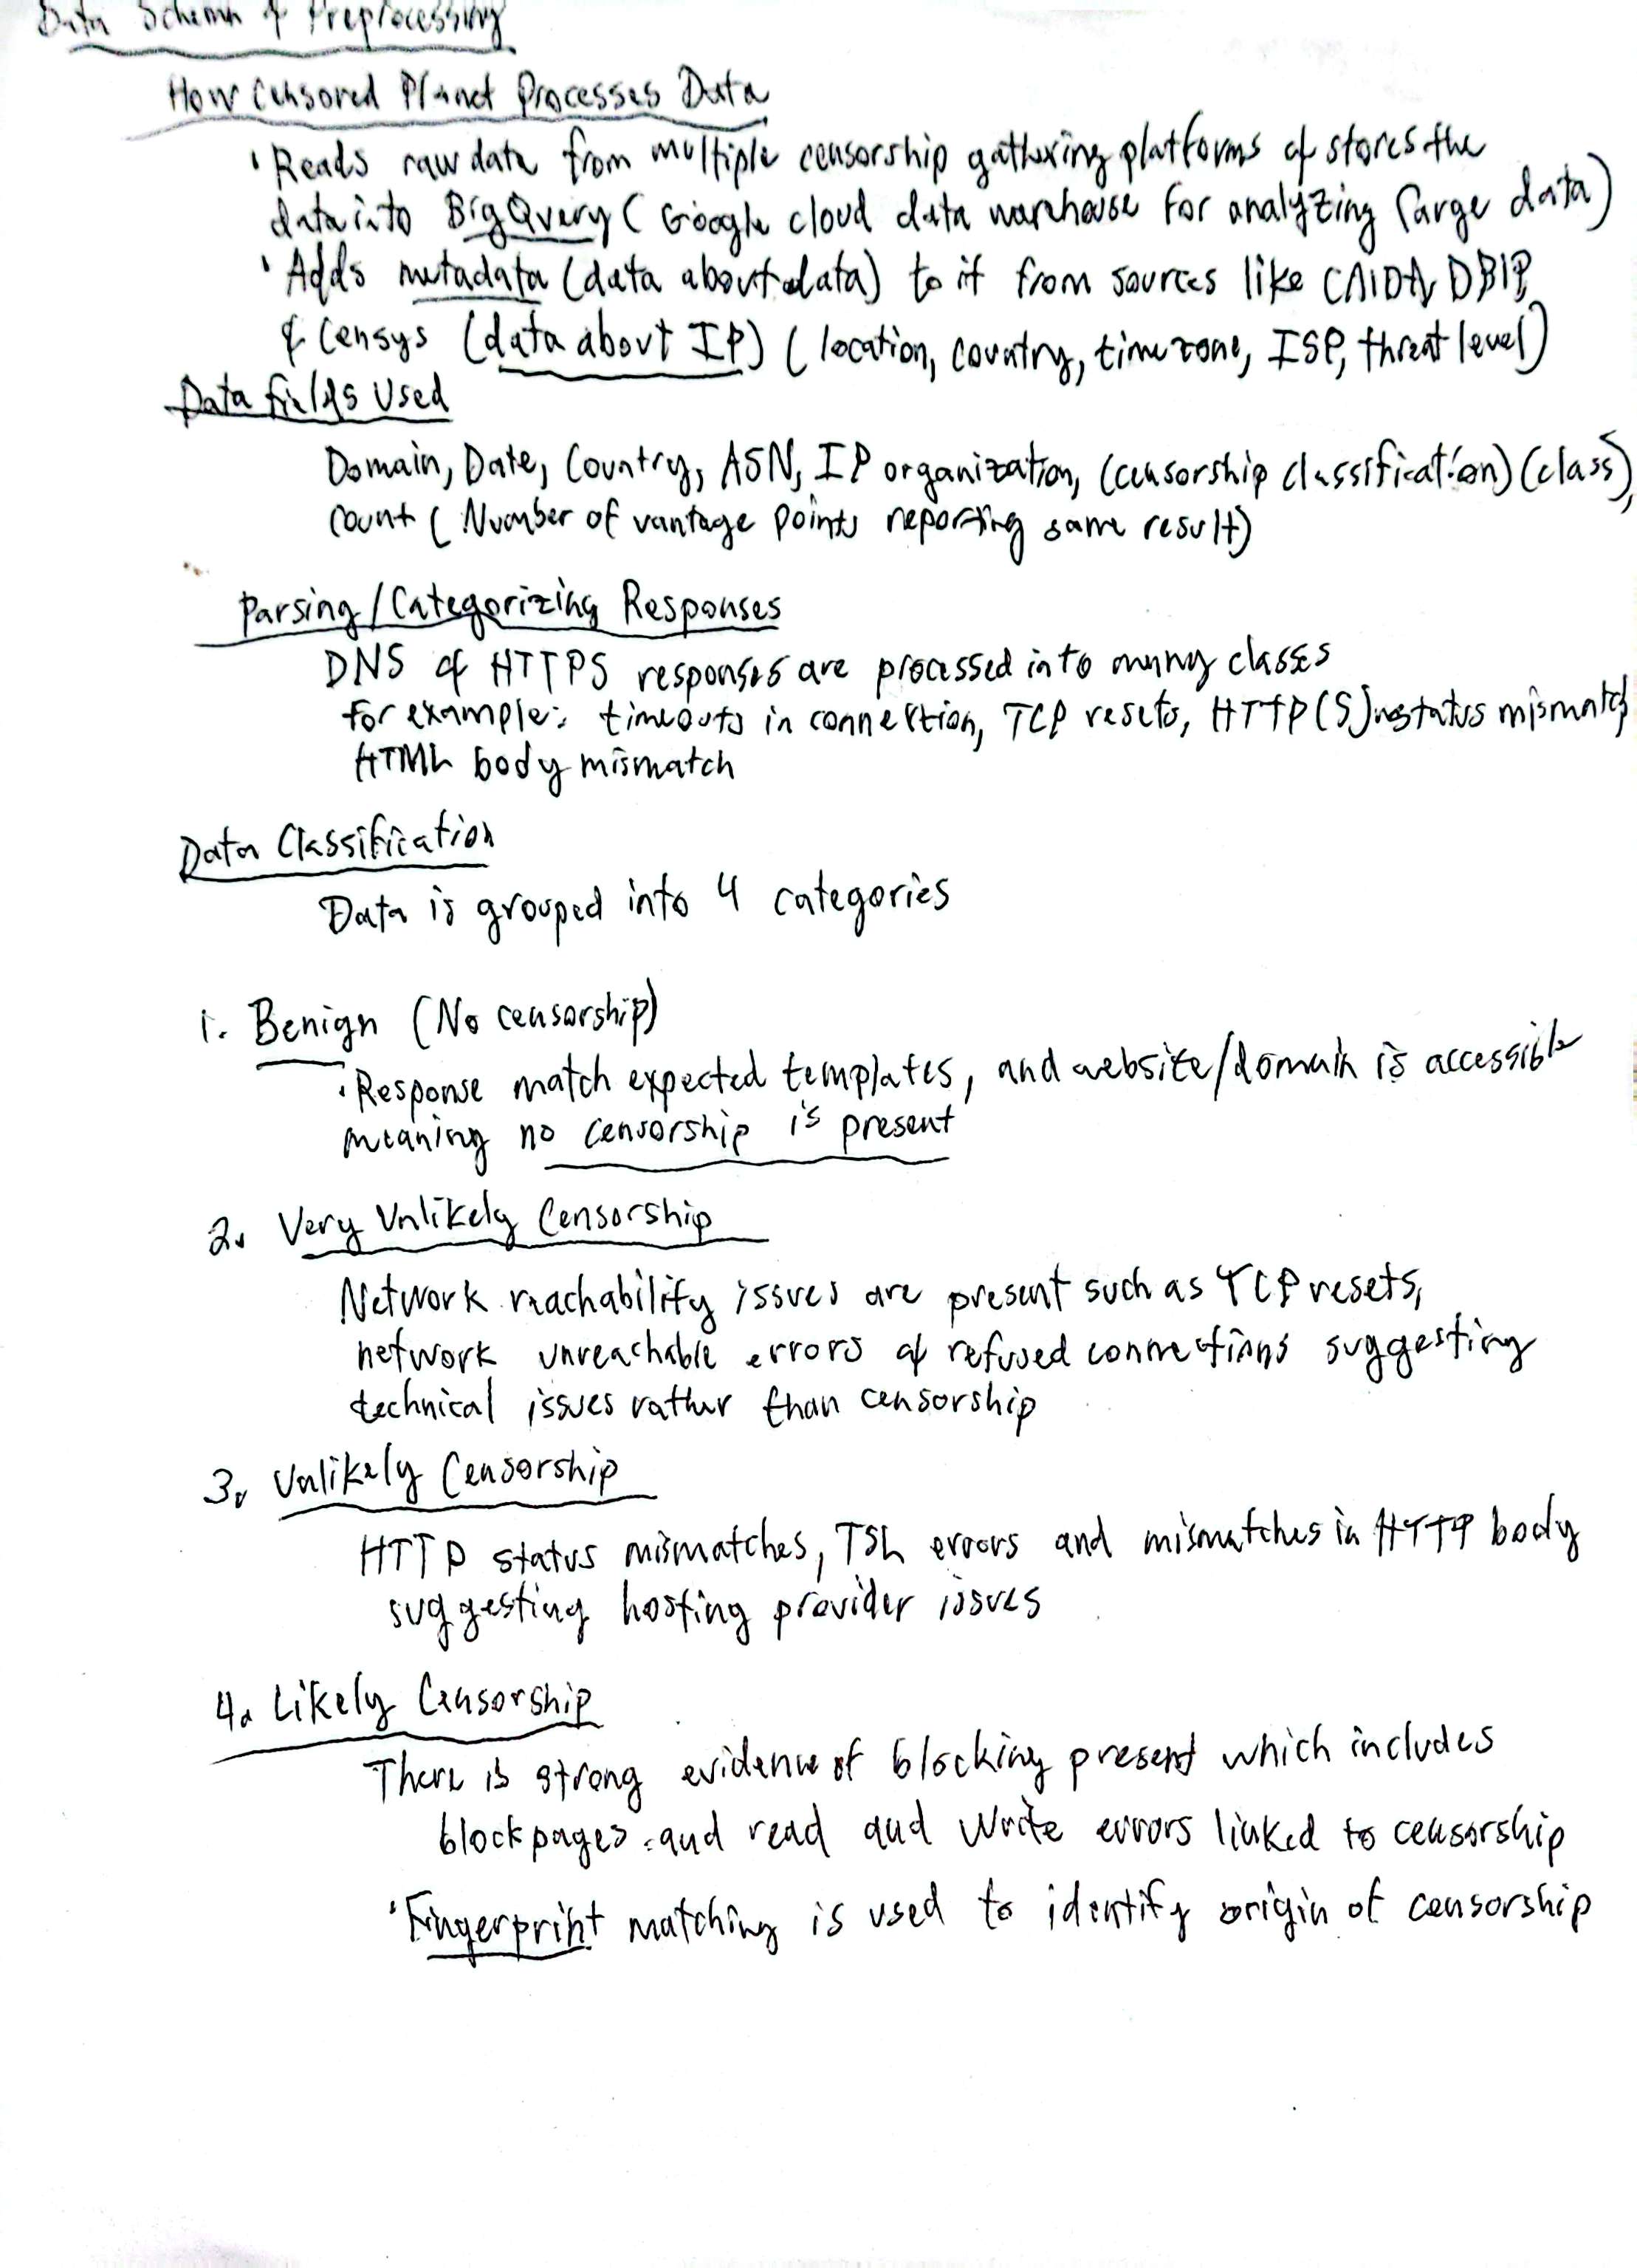 Data Schema & Preprocessing
How Censored Planet Processes Data
• Reads raw data from multiple censorship gathering platforms & stores the
data into BigQuery (Google cloud data warehouse for analyzing large data)
• Adds metadata (data about data) to it from sources like CAIDA, DBIP,
& Censys (data about IP) (location, country, timezone, ISP, threat level)
Data fields Used
Domain, Date, Country, ASN, IP organization, (censorship classification) (class),
count (Number of vantage points reporting same result)
Parsing/Categorizing Responses
DNS & HTTPS responses are processed into many classes
for example: timeouts in connection, TCP resets, HTTP(S) status mismatch
HTML body mismatch
Data Classification
Data is grouped into 4 categories
1. Benign (No censorship)
• Response match expected templates, and website/domain is accessible
meaning no censorship is present
2. Very Unlikely Censorship
Network reachability issues are present such as TCP resets,
network unreachable errors & refused connections suggesting
technical issues rather than censorship
3. Unlikely Censorship
HTTP status mismatches, TSL errors and mismatches in HTTP body
suggesting hosting provider issues
4. Likely Censorship
There is strong evidence of blocking present which includes
blockpages and read and write errors linked to censorship
• Fingerprint matching is used to identify origin of censorship